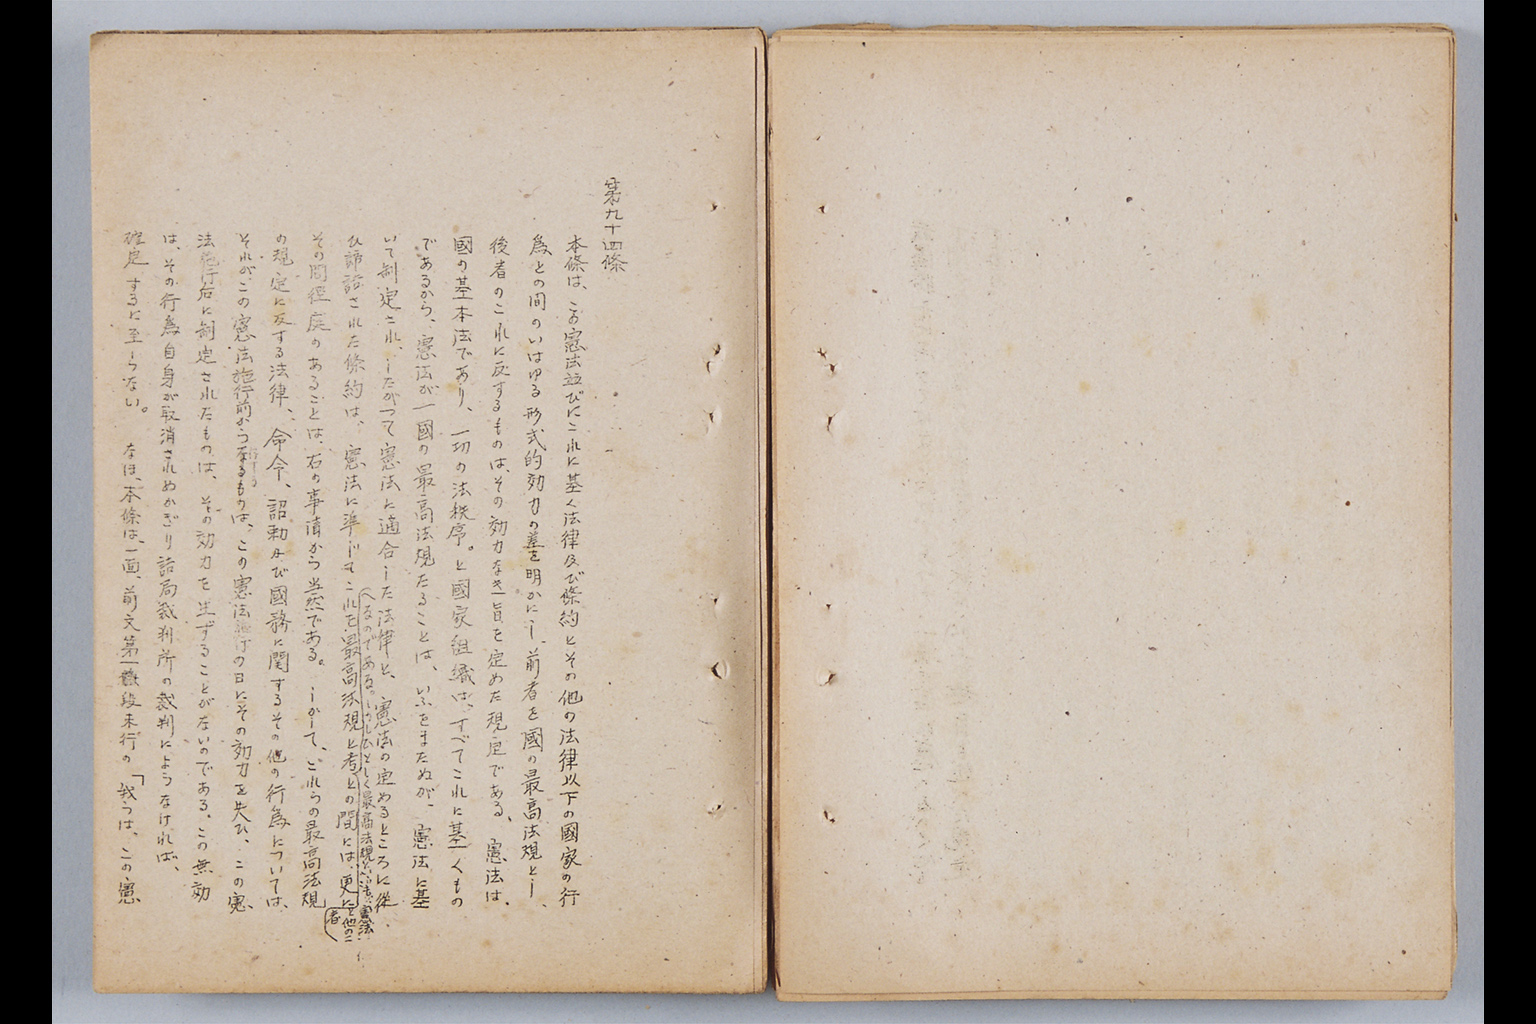 第九十四條
本條は、この憲法並びにこれに基く法律及び條約とその他の法律以下の國家の行
爲との間のいはゆる形式的効力の差を明かにし、前者を國の最高法規とし、
後者のこれに反するものは、その効力なき旨を定めた規定である。憲法は、
國の基本法であり、一切の法秩序と國家組織は、すべてこれに基くもの
であるから、憲法が一國の最高法規たることは、いふをまたぬが、憲法に基
いて制定され、したがつて憲法に適合した法律と、憲法の定めるところに從
へるのである。ひとしく最高法規といふ
ひ締結された條約は、憲法に準じてこれを最高法規と考との間には、更に
憲法と他の二者
その間徑庭のあることは、右の事情から当然である。しかして、これらの最高法規
の規定に反する法律、命令、詔勅及び國務に関するその他の行爲については、
それが、この憲法施行前からなるものは、この憲法施行の日にその効力を失ひ、この憲
法施行后に制定されたものは、その効力を生ずることがないのである。この無効
は、その行爲自身が取消されぬかぎり結局裁判所の裁判によらなければ、
確定するに至らない。 なほ、本條は、一面、前文第一段末行の「我らは、この憲